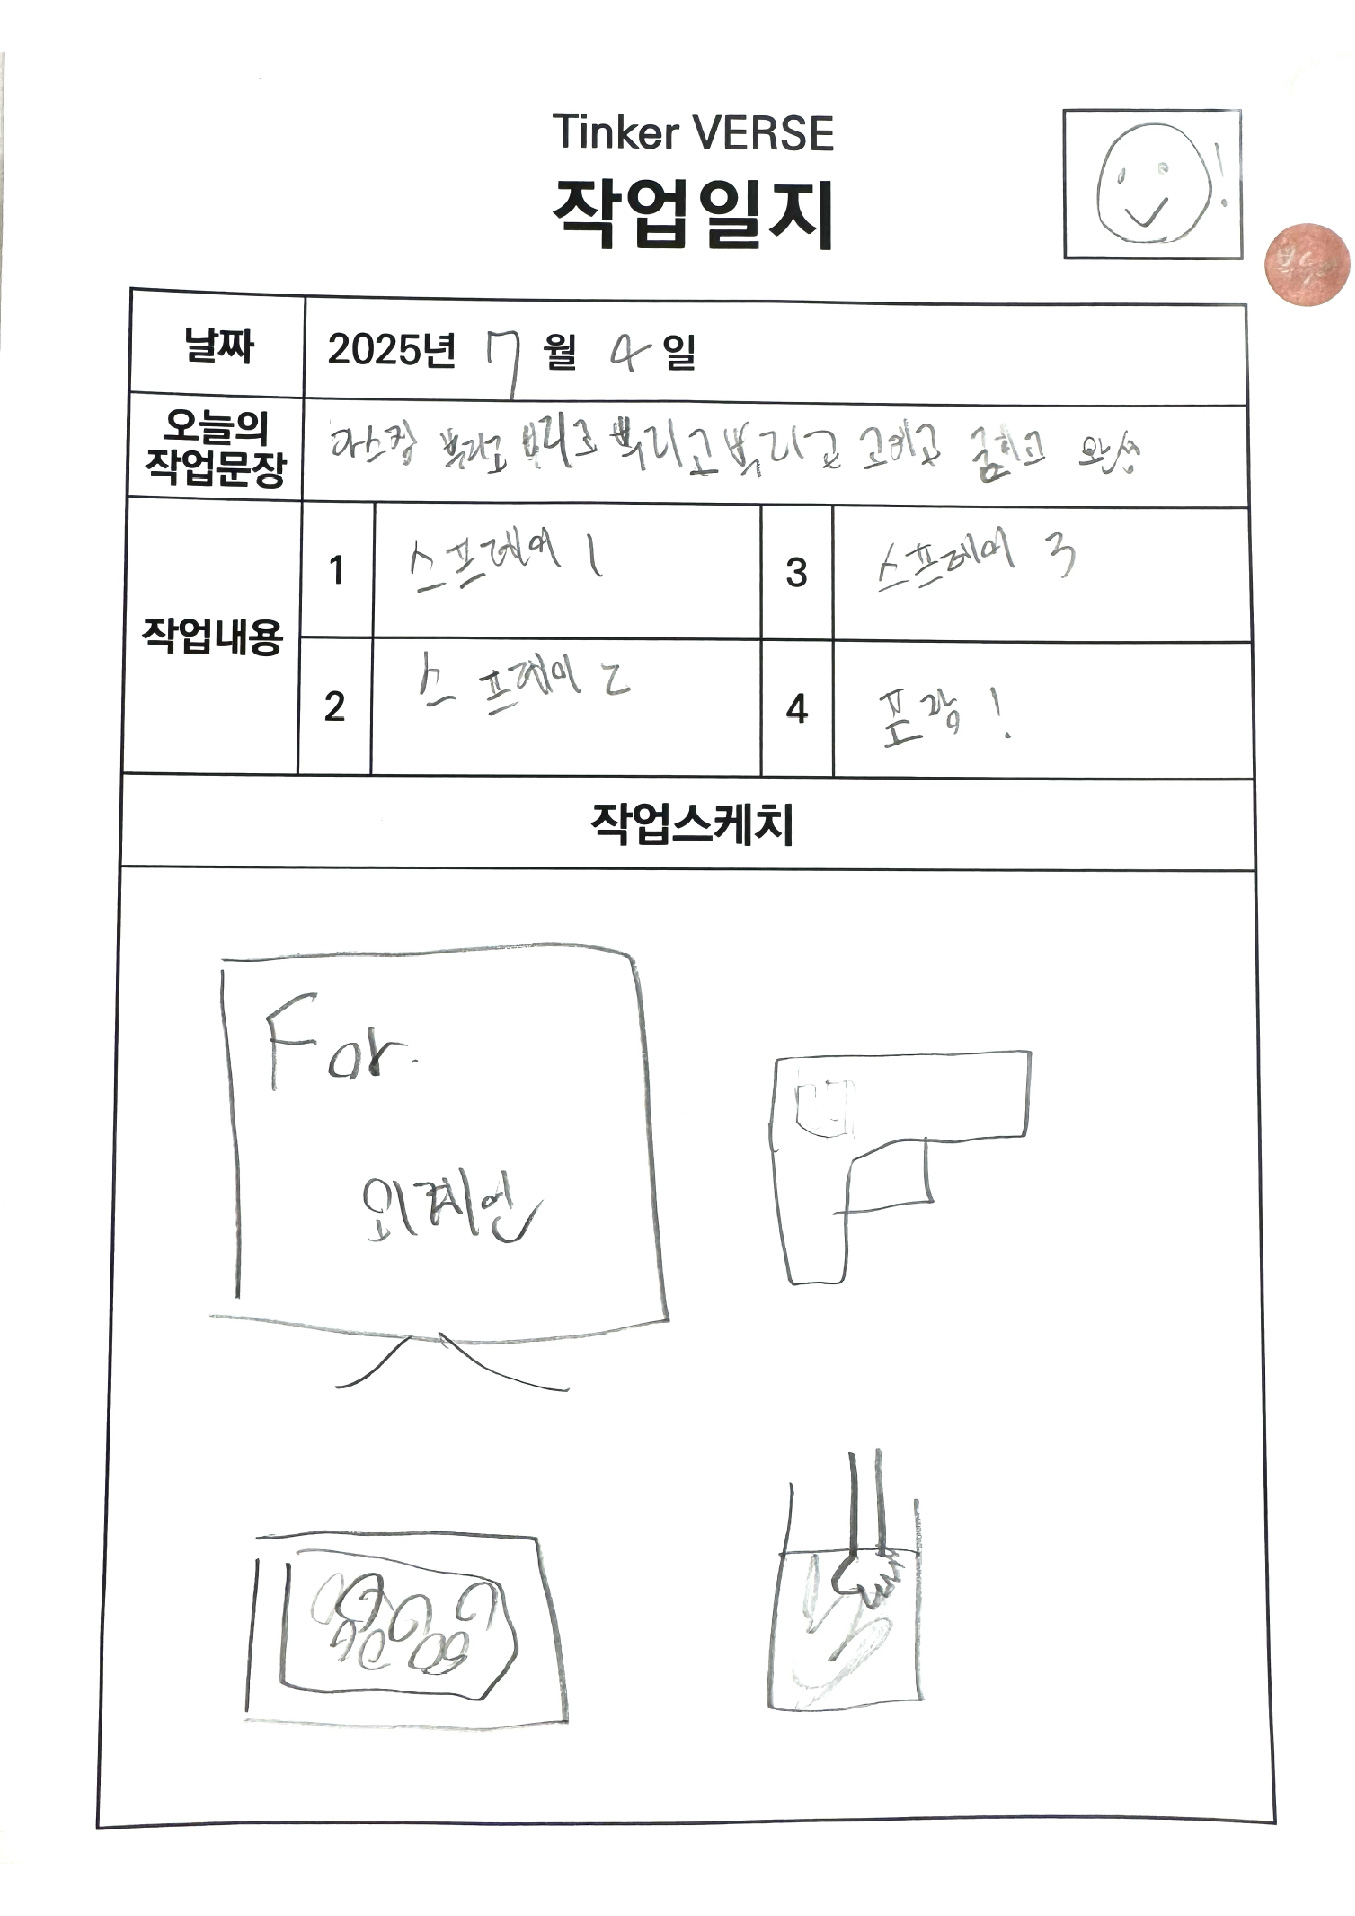 Tinker VERSE
작업일지
날짜 2025년 7월 4일
오늘의 작업문장 마스킹 뿌리고 뿌리고 뿌리고 완성
작업내용
1 스프레이 1
3 스프레이 3
2 스프레이 2
4 포장!
작업스케치
For.
외계인